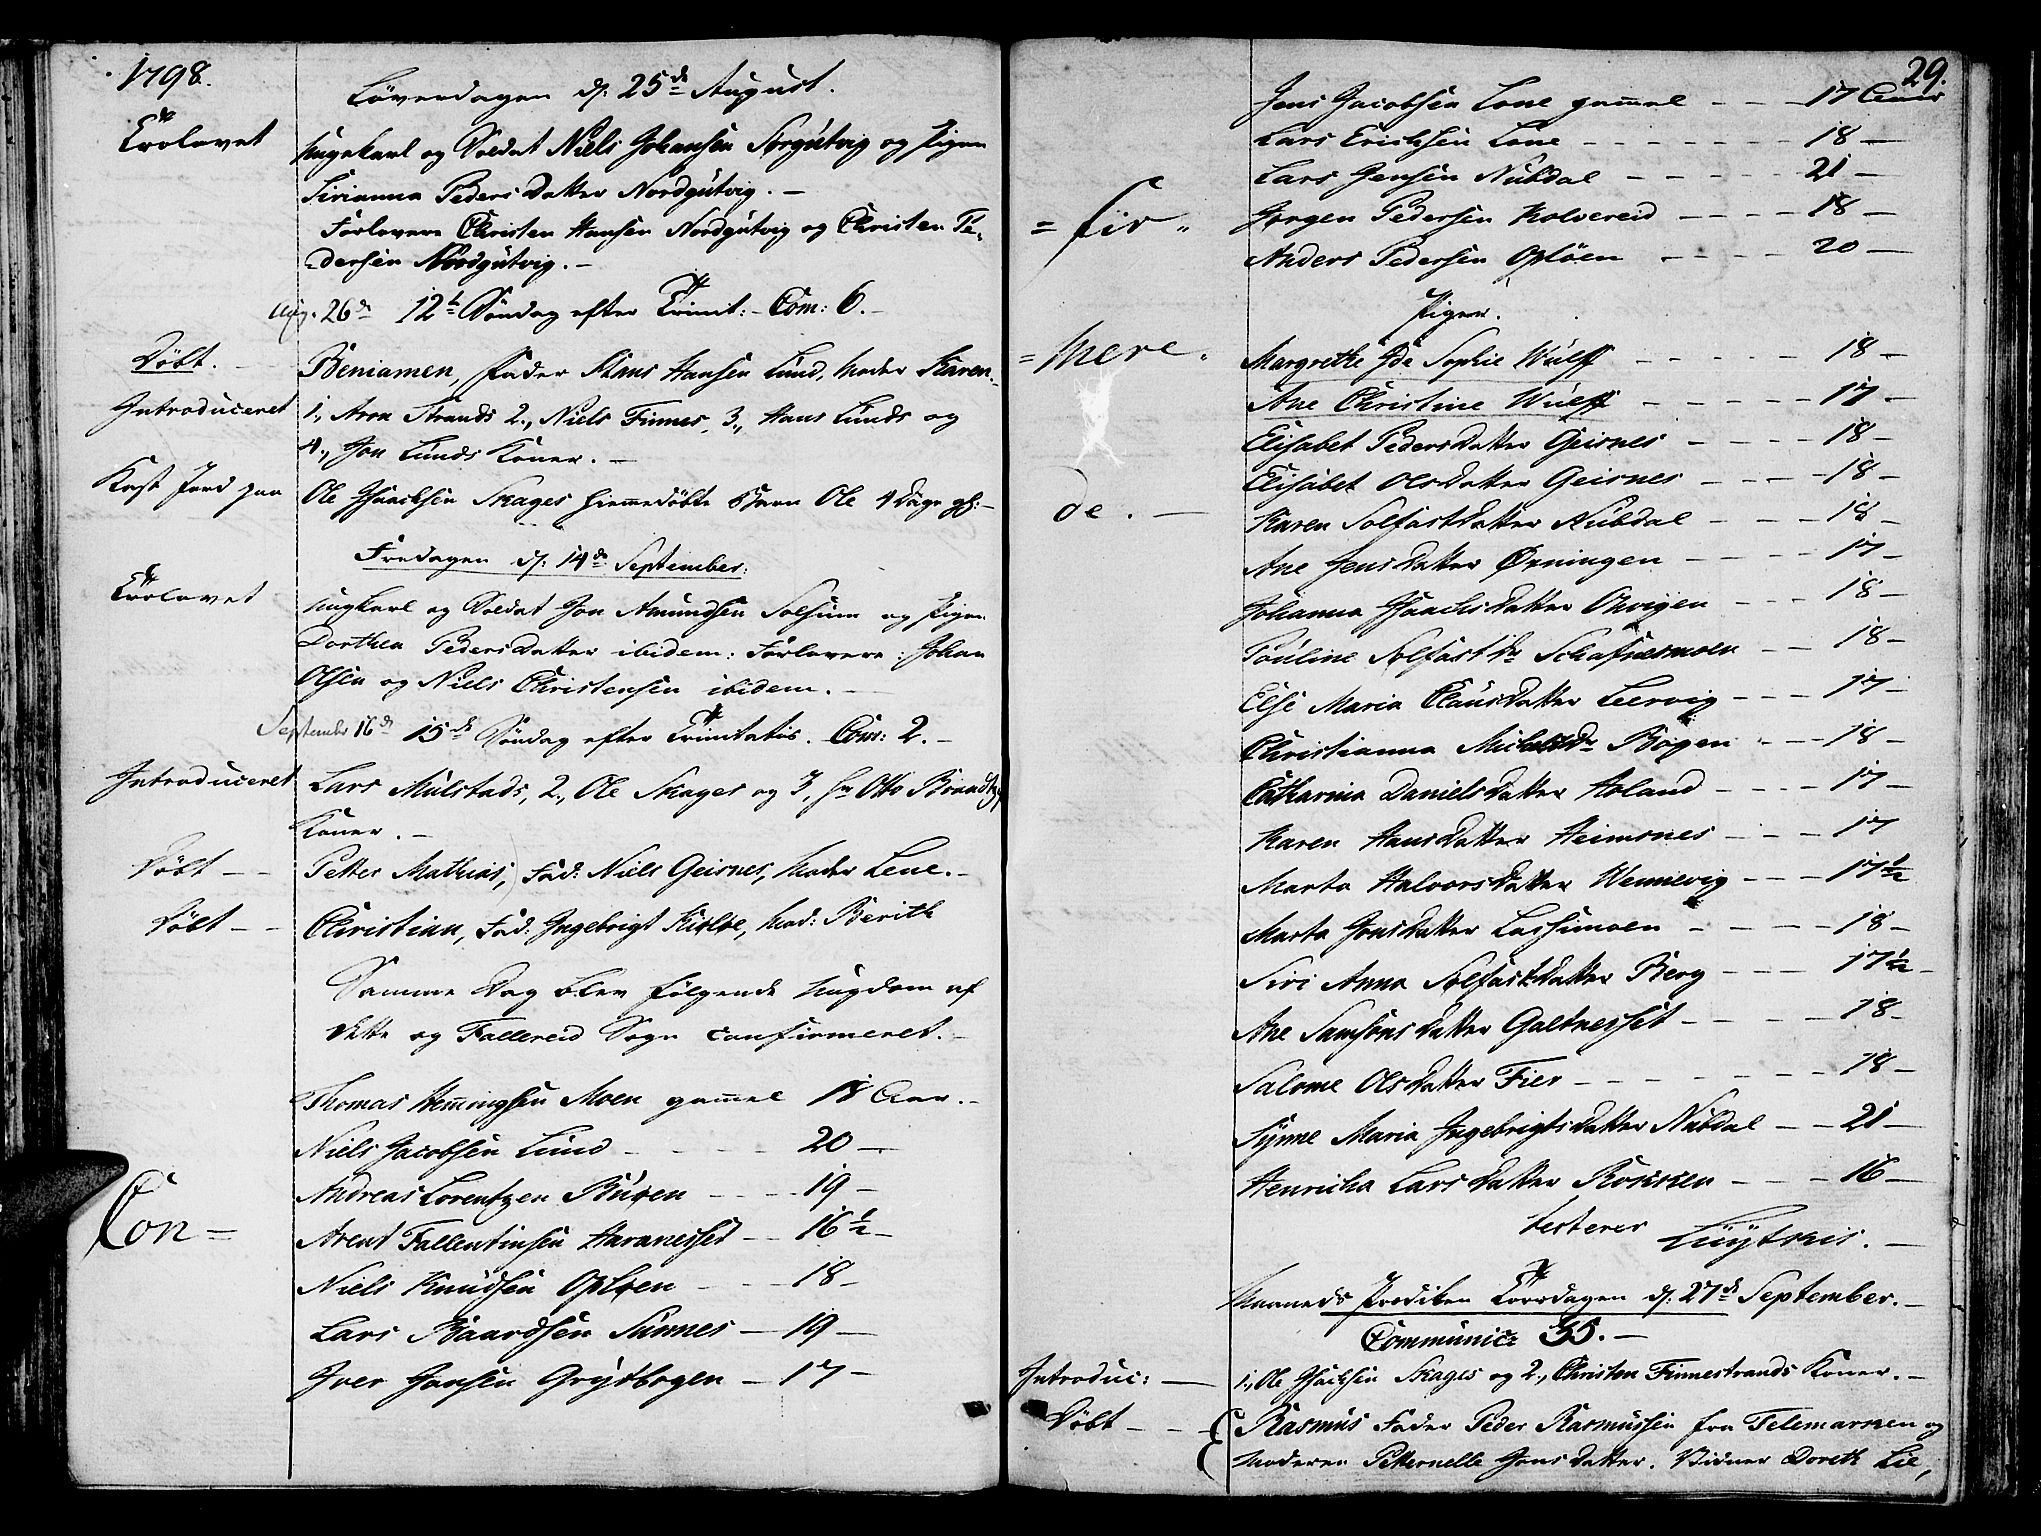 1798.
Løverdagen d: 25de August.
Trolovet
Ungekarl og Soldat Niels Johansen Sørgutvig og Pigen
Sirianna Peders Datter Nordgutvig. –
Forlovere Christen Hansen Nordgutvig og Christen Pe-
dersen Nordgutvig. –
Aug. 26de 12te Søndag efter Trinit: Com: 6. –
Døbt. –
Beniamen, Fader Hans Hansen Lund, Moder Karen. –
Introduceret
1., Aron Strands 2., Niels Finnes, 3., Hans Lunds og
4., Jon Lunds Koner. –
Kast Jord paa
Ole Isaachsen Skages hiemmedøbte Barn Ole 4 Dage gl: –
Fredagen d: 14de September.
Trolovet
Ungkarl og Soldat Jon Amundsen Solsum og Pigen
Dorthea Peders Datter ibidem: Forlovere: Johan
Olsen og Niels Christensen ibidem. –
September 16de 15de Søndag efter Trinitatis. Com: 2. –
Introduceret
Lars Mulstads, 2., Ole Skages og 3, Hr Otto Brandtzs
Koner. –
Døbt – –
Petter Mathias, Fad: Niels Geisnes, Moder Lene. –
Døbt – –
Christian, Fad: Ingebrigt Kirkøe, Mod: Berith
Samme Dag blev følgende Ungdom af
dette og Fallereid Sogn confirmeret. –
Thomas Hemingsen Moen gammel 18 Aar. –
Niels Jacobsen Lund – – – – 20 –
Andreas Lorentzen Buøen – – – 19 –
Con =
Arent Fallentinsen Haranesset – – 16½ –
Niels Knudsen Opløen – – – 18 –
Lars Baardsen Sunnes – 19 –
Iver Hansen Grydbogen – 17 –
29.
Jens Jacobsen Lone gammel – – – 17 Aar
Lars Erichsen Lone – – – – – 18 –
Lars Jensen Nubdal – – – – – 21 –
= fir "
Jørgen Pedersen Kolvereid – – – – 18 –
Anders Pedersen Opløen – – – – 20 –
Piger.
= mere "
Margrethe Ida Sophie Wulff – – – – 18 –
Ane Christine Wulff – – – – – 17 –
Elisabet Pedersdatter Geisnes – – – – 18 –
Elisabet Olsdatter Geisnes – – – – 18 –
de. –
Karen Solfastdatter Nubdal – – – – 18 –
Ane Jens Datter Ørningen – – – – 17 –
Johanna Isaachsdatter Okvigen – – – 18 –
Pauline Solfastdr Schafnesmoen – – – 18 –
Else Maria Clausdatter Leervig – – – 17 –
Christianna Michelsdr Bogen – – – 18 –
Catharina Danielsdatter Holand – – – 17 –
Karen Hansdatter Heimsnes – – – – 17
Marta Halvorsdatter Wennevig – – – 17½
Marta Jonsdatter Lassemoen – – – – 18 –
Siri Anna Solfastdatter Berg – – – 17½ –
Ane Samsonsdatter Galtnesset – – – – 18 –
Salome Olsdatter Fier – – – – – – 18 –
Synne Maria Ingebrigtsdatter Nubdal – – 21 –
Henricha Larsdatter Rossen – – – 16 –
testerer Lüytkis. –
Maaneds Prædiken Torsdagen d: 27de September. –
Communic: 35. –
Introduc: –
1., Ole Isachsen Skages og 2., Christen Finnestrands Koner. –
Døbt – – –
Rasmus Fader Peder Rasmussen fra Telemarken og
Moderen Petternelle Jonsdatter. Vidner Doreth Lie,